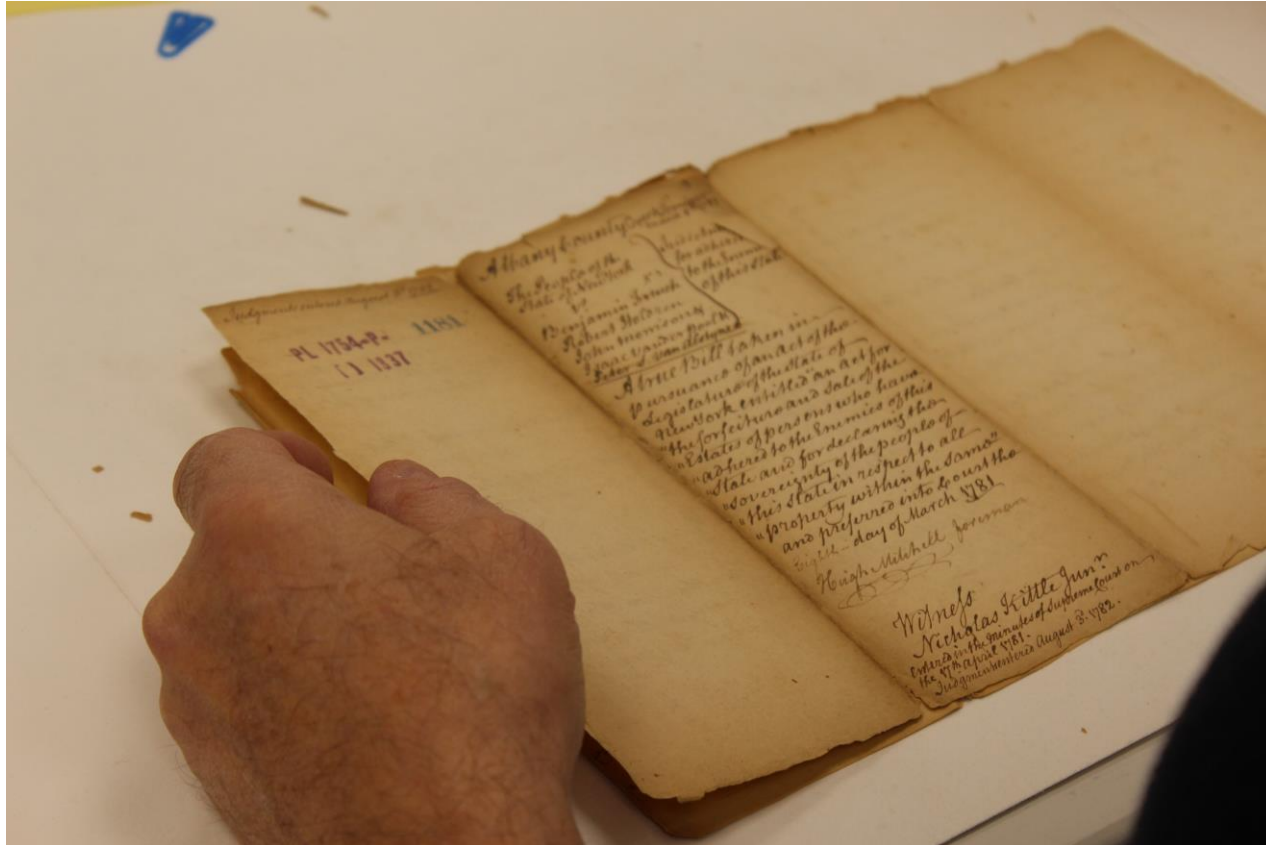 Judgment entered August 3d 1782
PL 1754-P.
1181
1337
Albany County
The People of the
State of New York
vs
Benjamin French
Robert Holdron
John Morrison
Isaac Vander
Peter S. Vandlorgne
Indictment
for adhering
to the Enemies
of this State
A true Bill taken in
Pursuance of an act of the
Legislature of the State of
New York entitled "an act for
"the forfeiture and sale of the
"Estates of persons who have
"adhered to the Enemies of this
"State and for declaring the
"sovereignty of the people of
"this State in respect to all
"property within the same"
and preferred into Court the
Eighth day of March 1781
Hugh Mitchell foreman
Witness
Nicholas Kittle Junr.
entered in the minutes of Supreme Court on
the april 1781.
Judgment entered August 3. 1782.